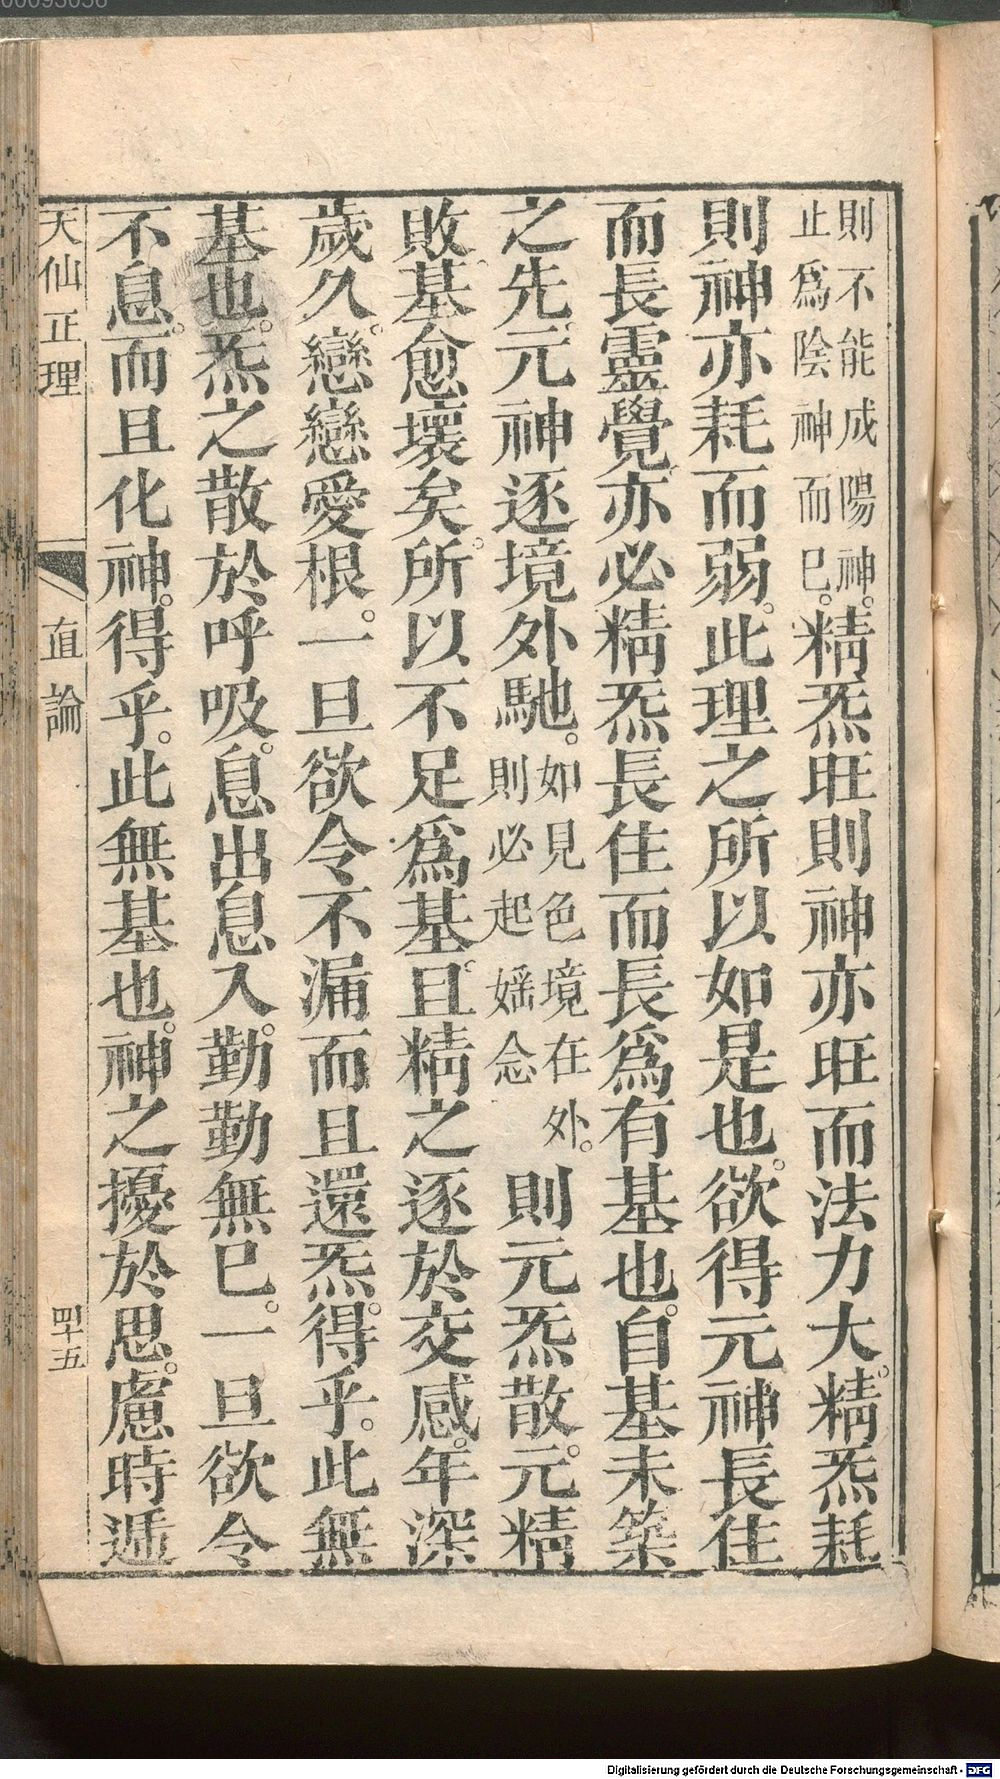 00093056
則不能成陽神。
止爲陰神而已。精炁旺則神亦旺而法力大。精炁耗
則神亦耗而弱。此理之所以如是也。欲得元神長住
而長靈覺亦必精炁長住而長爲有基也。自基未築
之先。元神逐境外馳。如見色境在外。
則必起婬念則元炁散。元精
敗。基愈壞矣。所以不足爲基。且精之逐於交感。年深
歲久。戀戀愛根。一旦欲令不漏而且還炁。得乎。此無
基也。炁之散於呼吸。息出息入。勤勤無已。一旦欲令
不息。而且化神。得乎。此無基也。神之擾於思。慮時遞
天仙正理 直論 四十五
Digitalisierung gefördert durch die Deutsche Forschungsgemeinschaft - DFG